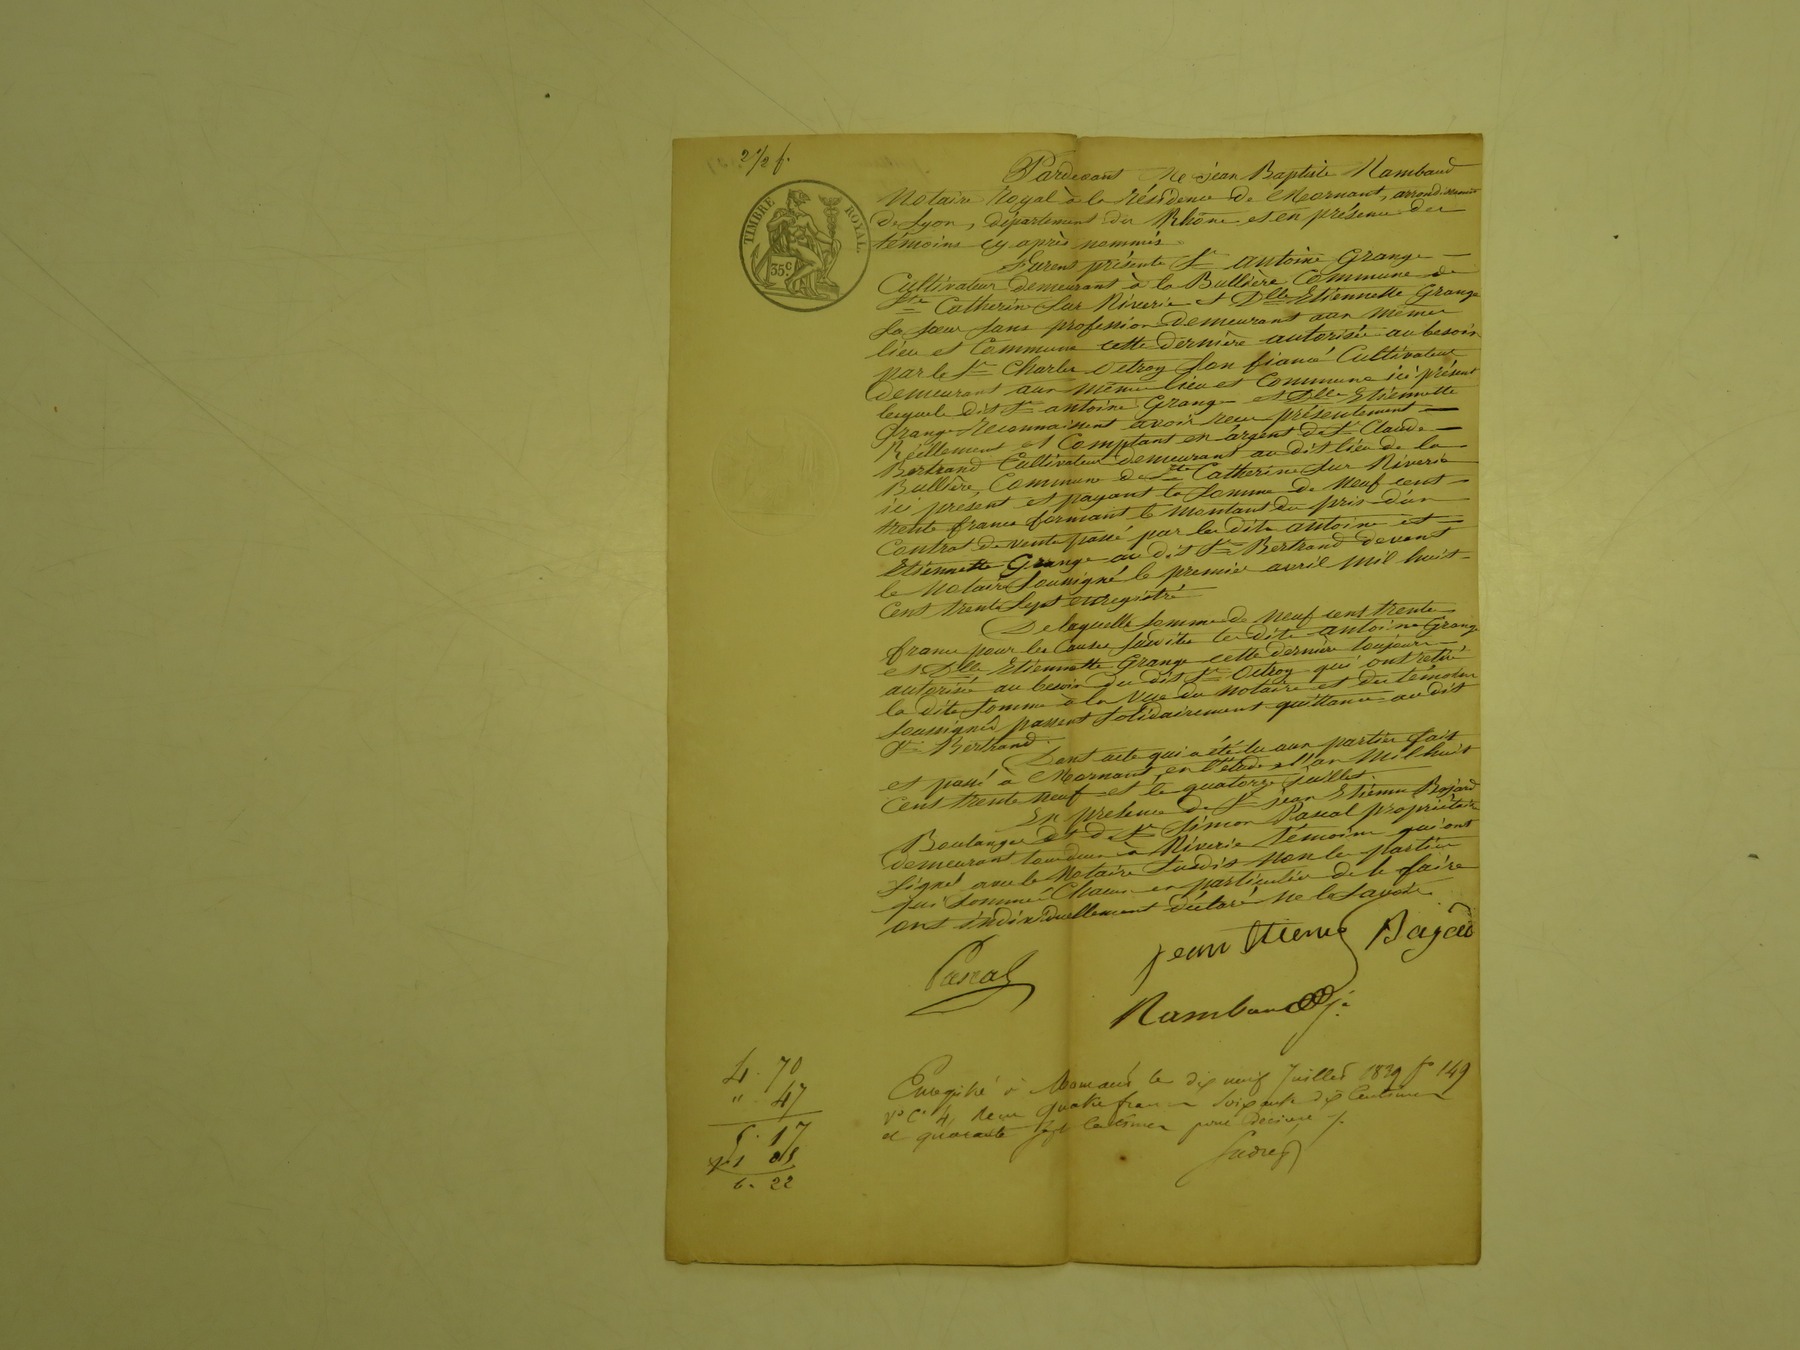 2 1/2 f.
TIMBRE ROYAL
35 c.
Pardevant Me jean Baptiste Rambaud
Notaire Royal à la résidence de Mornant, arrondissement
de Lyon, département du Rhône et en présence des
témoins cy après nommés
Furent présents Sr antoine Grange
Cultivateur demeurant à la Bullière Commune de
Ste Catherine Sur Riverie et Dlle Etiennette Grange
Sa sœur sans profession demeurant aux mêmes
lieu et Commune cette dernière autorisée au besoin
par le Sr Charles Octroy Son fiancé Cultivateur
demeurant aux mêmes lieu et Commune ici présent
lesquels dits Sr antoine Grange et Dlle Etiennette
Grange Reconnaissent avoir reçu présentement
Réellement et Comptant en argent de Sr Claude
Bertrand Cultivateur demeurant au dit lieu de la
Bullière, Commune de Ste Catherine Sur Riverie
ici présent et payant la Somme de Neuf cent
trente francs formant le montant du prix d'un
Contrat de vente passé par les dits antoine et
Etiennette Grange au dit Sr Bertrand devant
le Notaire Soussigné le premier avril mil huit
Cent trente Sept enregistré
De laquelle Somme de Neuf cent trente
francs pour les Causes Susdites les dits antoine Grange
et Dlle Etiennette Grange cette dernière toujours
autorisée au besoin du dit Sr Octroy qui ont retiré
la dite Somme à la vue du Notaire et des témoins
Soussignés passent Solidairement quittance au dit
Sr Bertrand.
Dont acte qui a été lu aux parties fait
et passé à Mornant, en l'étude l'an Mil huit
Cent trente neuf et le quatorze juillet
En présence de Sr jean Etienne Bajard
Boulanger et de Sr Simon Pascal propriétaire
demeurant tous deux à Riverie témoins qui ont
Signé avec le Notaire Susdit non les parties
qui Sommé Chacun en particulier de le faire
ont individuellement déclaré ne le Savoir
jean Etienne Bajard
Pascal
Rambaud
4. 70
" 47
5. 17
1 05
6. 22
Enregistré à Mornant le dix neuf Juillet 1839 fo 149
Vo C. 4, reçu quatre francs Soixante dix Centimes
et quarante Sept Centimes pour décime